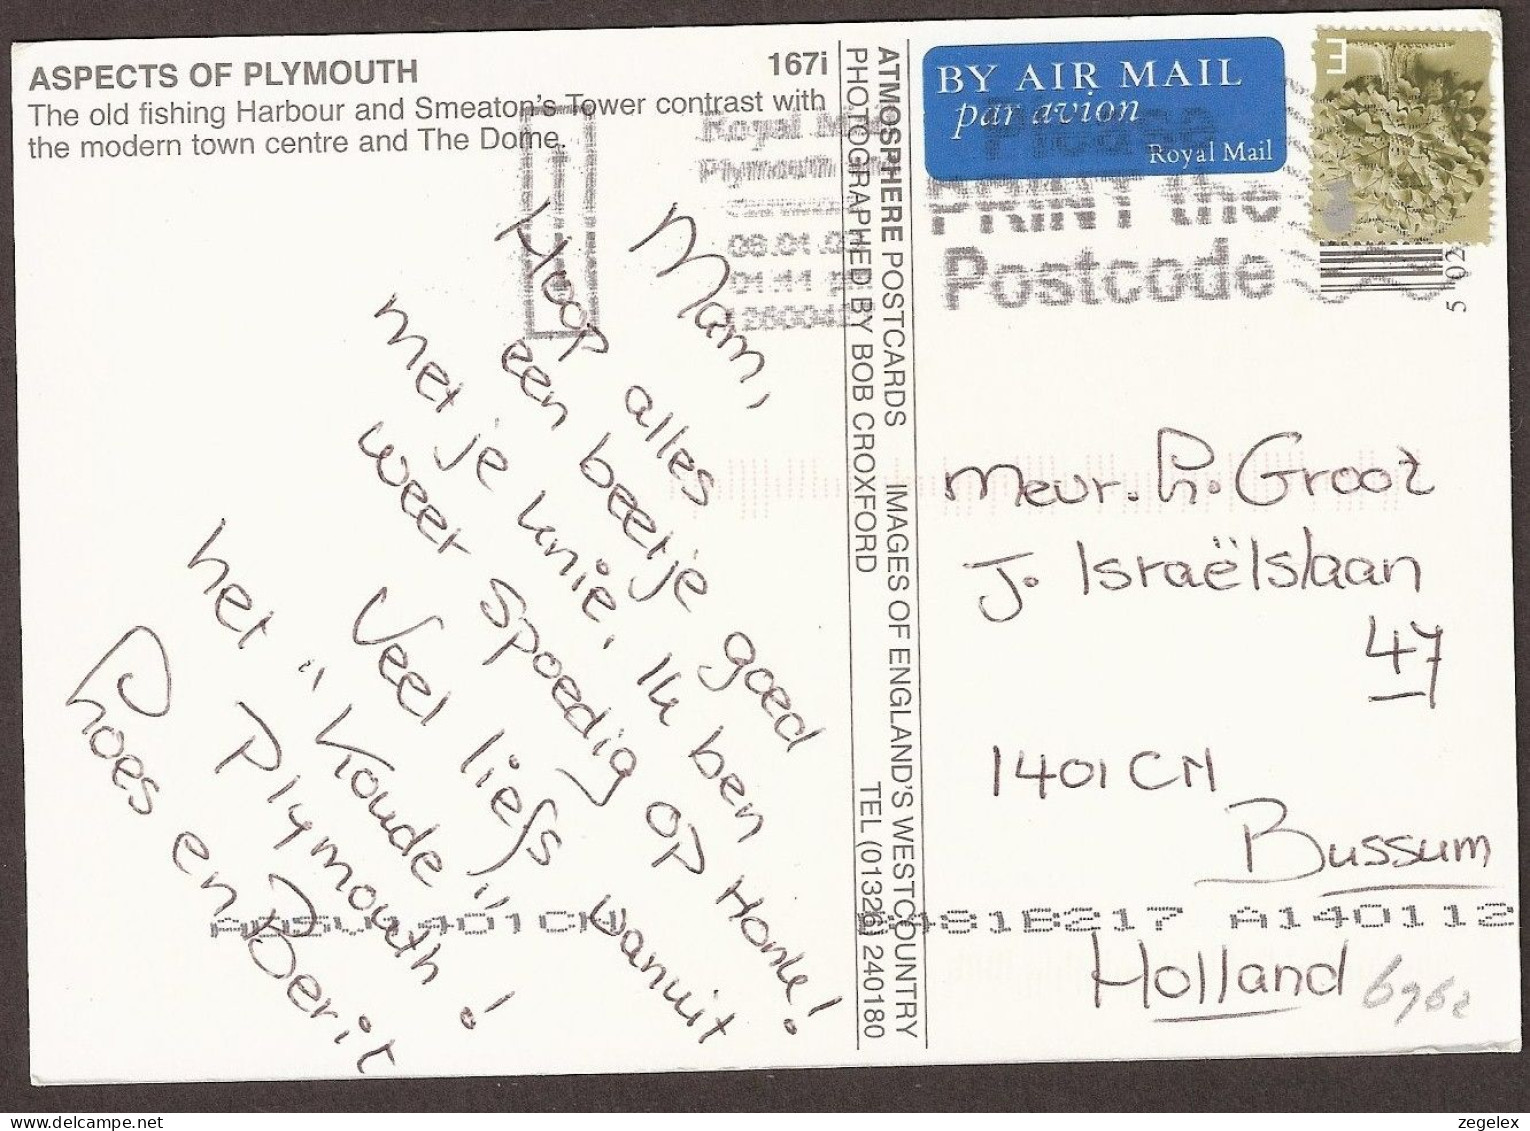 ASPECTS OF PLYMOUTH 167i
The old fishing Harbour and Smeaton's Tower contrast with
the modern town centre and The Dome.
Mam,
Hoop alles
een beetje goed
met je knie. Ik ben
weer spoedig op Honk!
Veel liefs vanuit
het "Koude"
Plymouth!
Phoes en Berit
ATMOSPHERE POSTCARDS IMAGES OF ENGLAND'S WESTCOUNTRY
PHOTOGRAPHED BY BOB CROXFORD TEL (01326) 240180
BY AIR MAIL
par avion
Royal Mail
E
Please
PRINT the
Postcode
Royal
Plymouth
06.01.0
01:11
Mevr. P. Groot
J. Israëlslaan
47
1401 CM
Bussum
Holland
6962
1401CM
A140112
zegelex